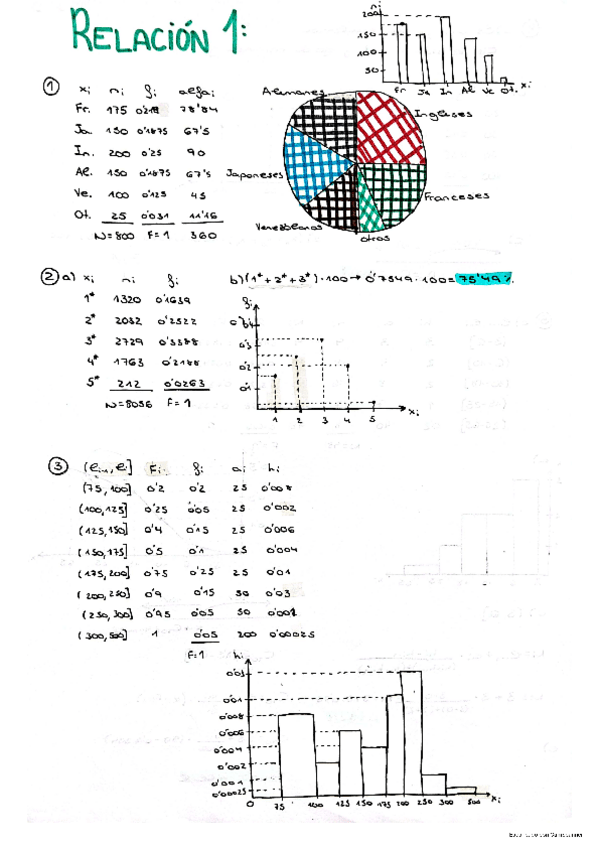 RELACIÓN 1:
ni
200
150
100
50
Fr Ja In Al Ve Ot. xi
① xi ni fi alfai
Fr. 175 0'218 78'84
Ja. 150 0'1875 67'5
In. 200 0'25 90
Al. 150 0'1875 67'5
Ve. 100 0'125 45
Ot. 25 0'031 11'16
N=800 F=1 360
Alemanes
Ingleses
Japoneses
Franceses
Venezolanos
otros
② a) xi ni fi
1* 1320 0'1639
2* 2032 0'2522
3* 2729 0'3388
4* 1763 0'2188
5* 212 0'0263
N=8056 F=1
b) (1*+2*+3*)·100→0'7549·100=75'49%
fi
0'4
0'3
0'2
0'1
1 2 3 4 5 xi
③ (ei-1, ei] Fi fi ai hi
(75, 100] 0'2 0'2 25 0'008
(100,125] 0'25 0'05 25 0'002
(125,150] 0'4 0'15 25 0'006
(150,175] 0'5 0'1 25 0'004
(175,200] 0'75 0'25 25 0'01
(200,250] 0'9 0'15 50 0'03
(250,300] 0'95 0'05 50 0'001
(300,500] 1 0'05 200 0'00025
F=1
hi
0'03
0'01
0'008
0'006
0'004
0'002
0'001
0'00025
0 75 100 125 150 175 200 250 300 500 xi